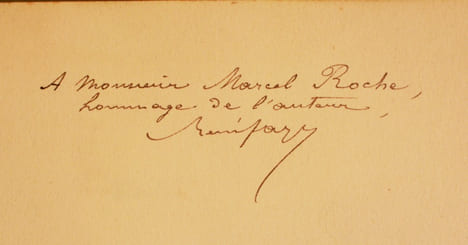 A Monsieur Marcel Roche,
hommage de l'auteur,